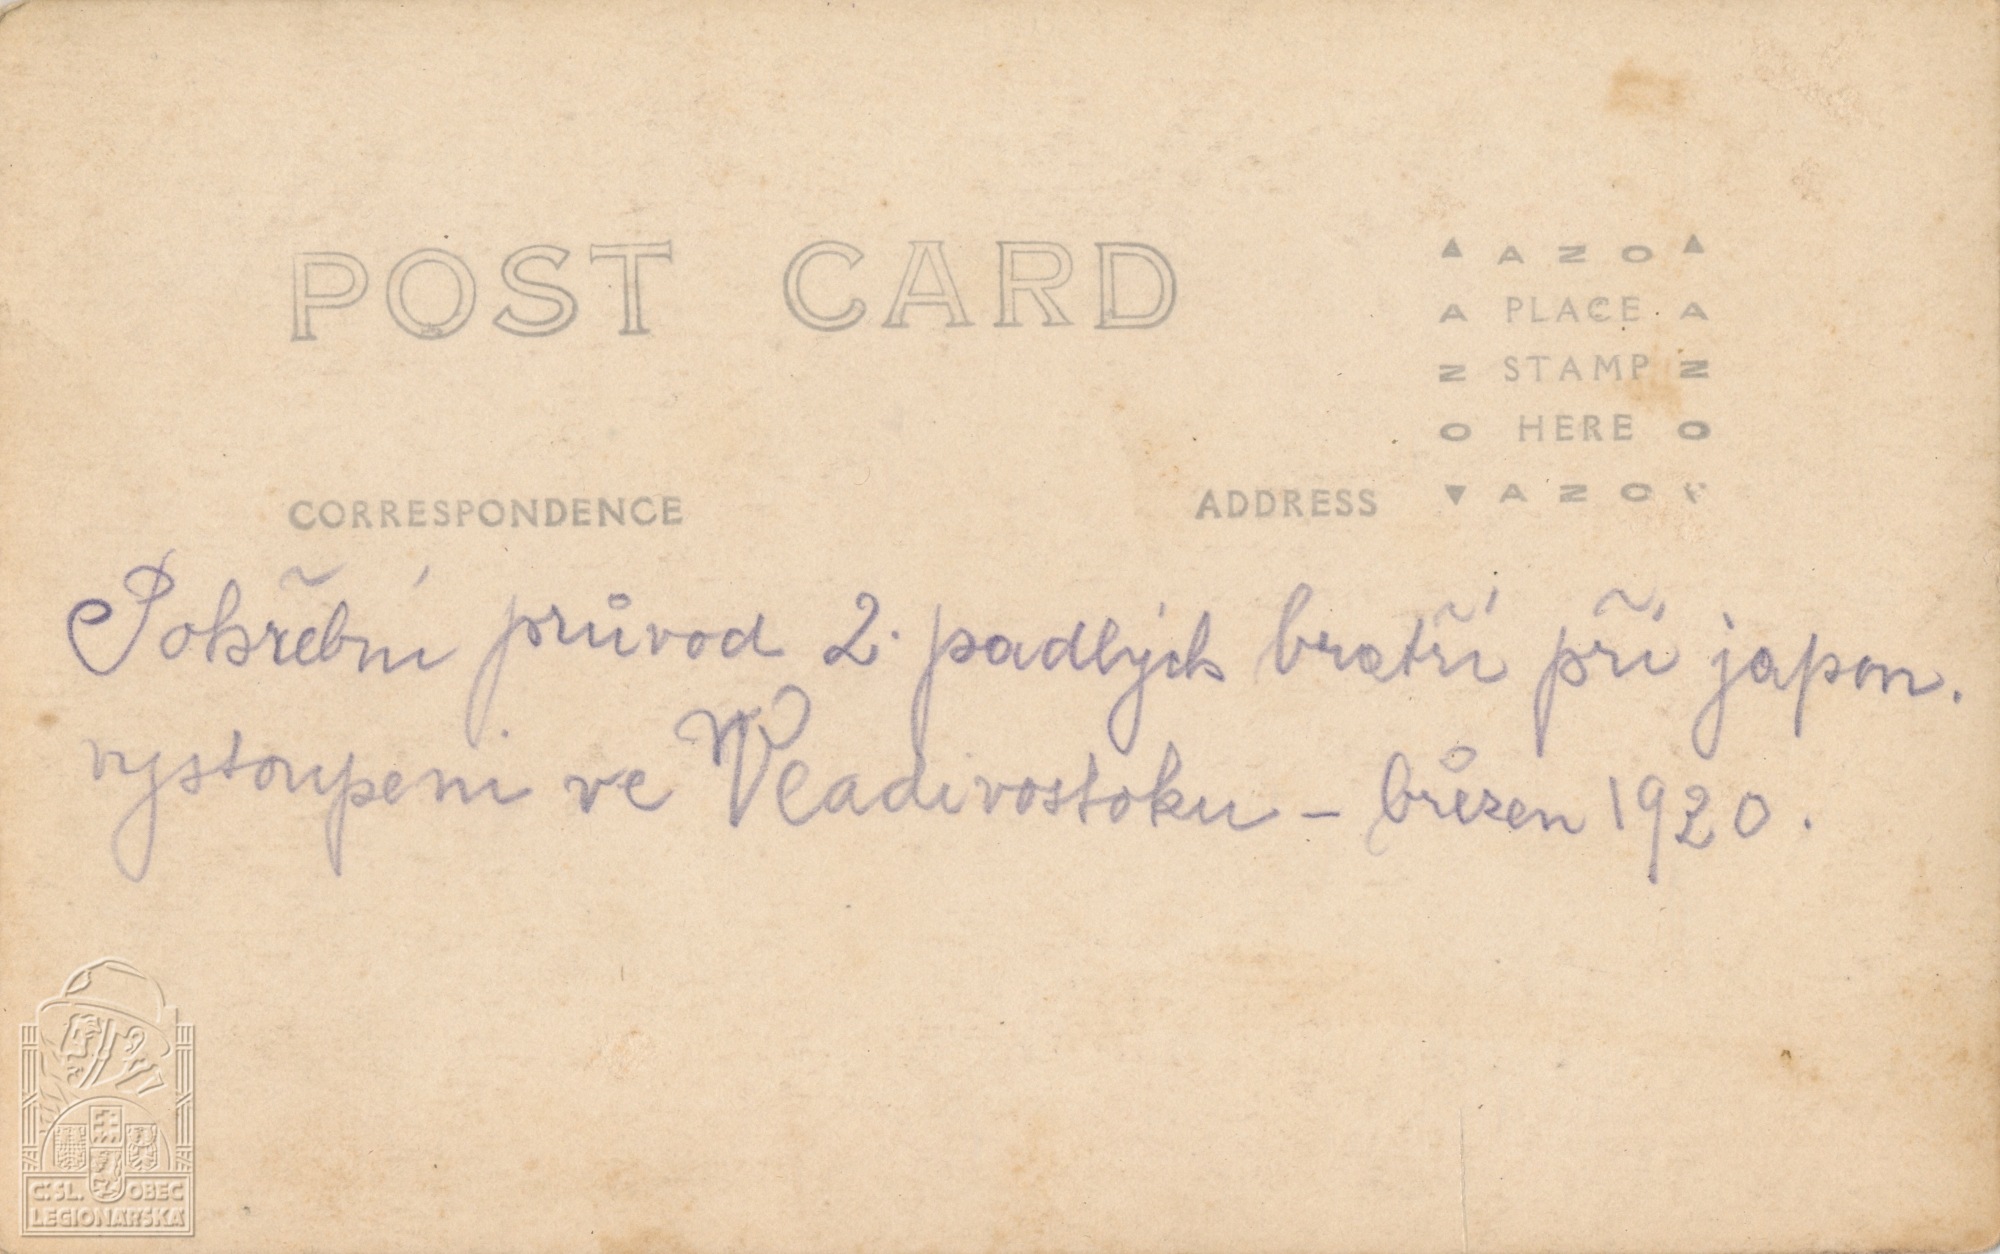 POST CARD
▲ AZO ▲
A PLACE A
N STAMP N
O HERE O
▼ AZO
CORRESPONDENCE
ADDRESS
Pohřební průvod 2. padlých bratří při japon.
vystoupeni ve Vladivostoku – březen 1920.
Č.SL. OBEC
LEGIONÁŘSKÁ